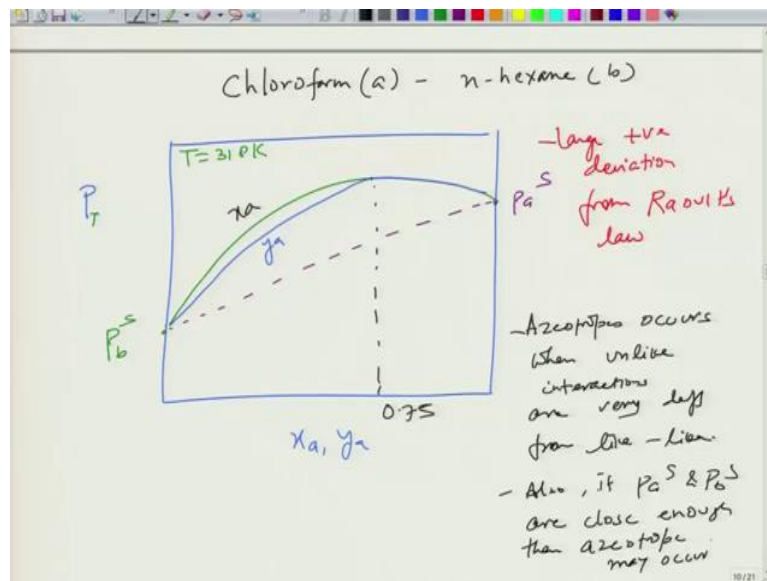 Chloroform (a) - n-hexane (b)
T = 318K
P_T
xa
ya
Pa^S
Pb^S
0.75
xa, ya
- Large +ve
deviation
from Raoult's
law
- Azeotropes occurs
when unlike
interactions
are very diff
from like-like.
- Also, if Pa^S & Pb^S
are close enough
then azeotrope
may occur
10/21